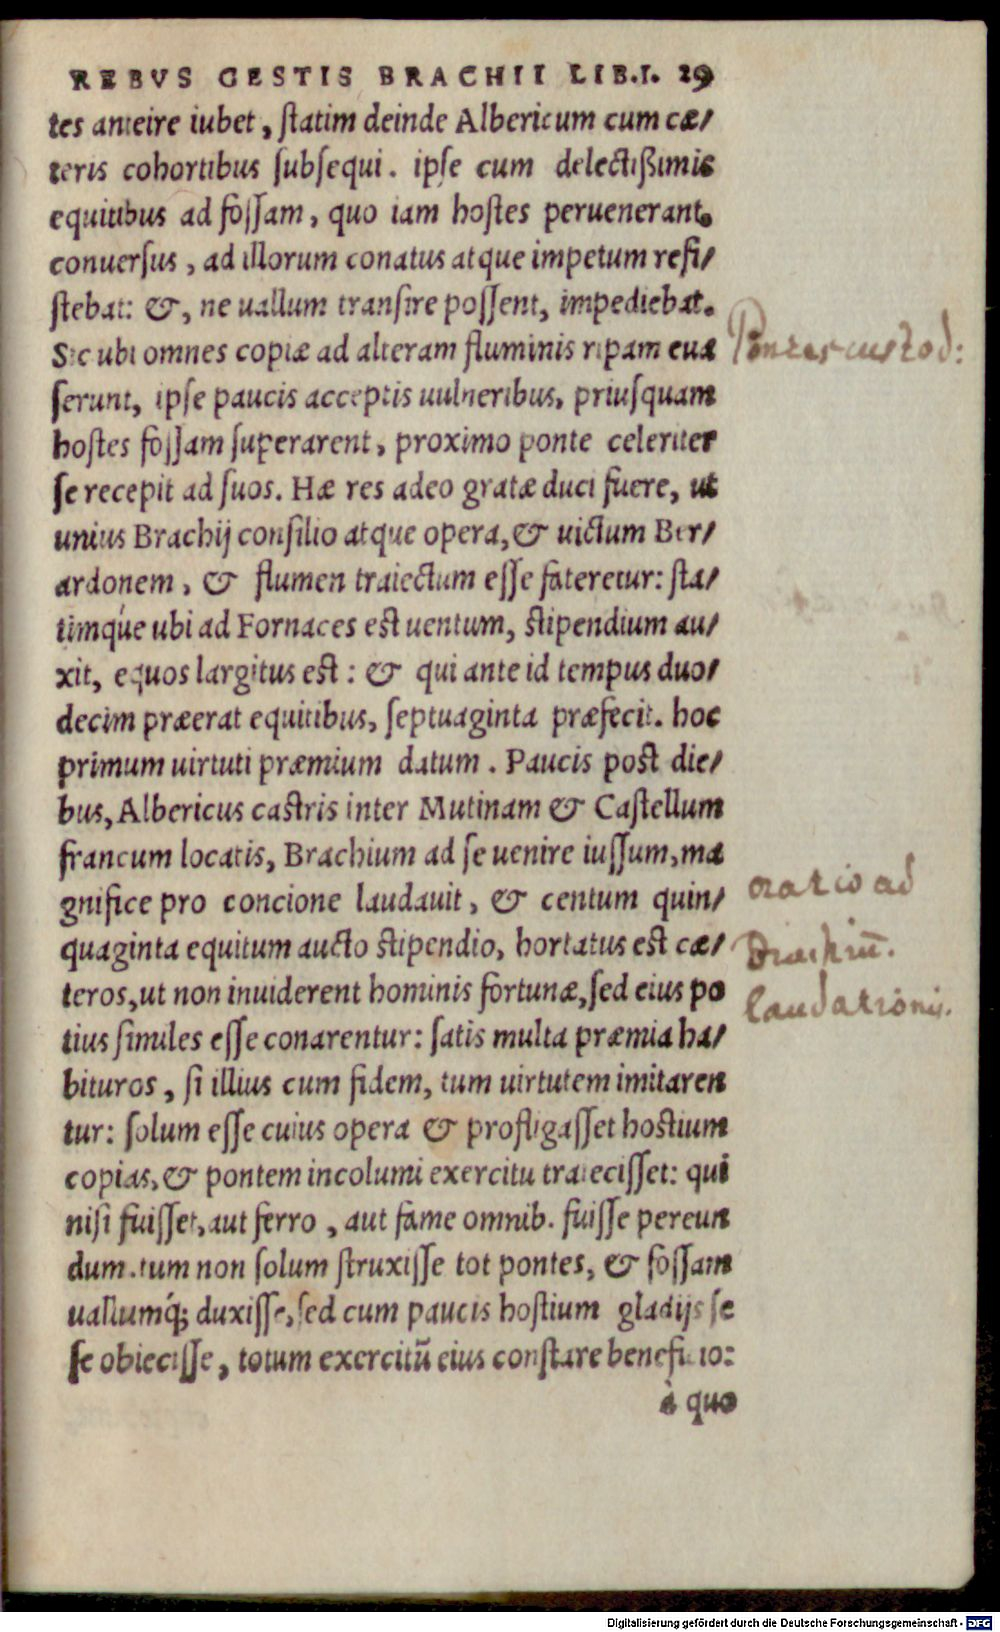 REBVS GESTIS BRACHII LIB.I. 29
tes anteire iubet, ſtatim deinde Albericum cum cæ/
teris cohortibus ſubſequi. ipſe cum delectißimis
equitibus ad foſſam, quo iam hoſtes peruenerant.
conuerſus, ad illorum conatus atque impetum reſi/
ſtebat: &, ne uallum tranſire poſſent, impediebat.
Sic ubi omnes copiæ ad alteram fluminis ripam eua
ſerunt, ipſe paucis acceptis uulneribus, priuſquam
hoſtes foſſam ſuperarent, proximo ponte celeriter
ſe recepit ad ſuos. Hæ res adeo gratæ duci fuere, ut
unius Brachij conſilio atque opera, & uictum Ber/
ardonem, & flumen traiectum eſſe fateretur: ſta/
timq́ue ubi ad Fornaces eſt uentum, ſtipendium au/
xit, equos largitus eſt: & qui ante id tempus duo/
decim præerat equitibus, ſeptuaginta præfecit. hoc
primum uirtuti præmium datum. Paucis poſt die/
bus, Albericus caſtris inter Mutinam & Caſtellum
francum locatis, Brachium ad ſe uenire iuſſum, ma
gnifice pro concione laudauit, & centum quin/
quaginta equitum aucto ſtipendio, hortatus eſt cæ/
teros, ut non inuiderent hominis fortunæ, ſed eius po
tius ſimiles eſſe conarentur: ſatis multa præmia ha/
bituros, ſi illius cum fidem, tum uirtutem imitaren
tur: ſolum eſſe cuius opera & profligaſſet hoſtium
copias, & pontem incolumi exercitu traieciſſet: qui
niſi fuiſſet, aut ferro, aut fame omnib. fuiſſe pereun
dum. tum non ſolum ſtruxiſſe tot pontes, & foſſam
uallumq́; duxiſſe, ſed cum paucis hoſtium gladijs ſe
ſe obieciſſe, totum exercitū eius conſtare beneficio:
à quo
Pontes custod:
oratio ad
Brachiū.
laudationis.
Digitalisierung gefördert durch die Deutsche Forschungsgemeinschaft - DFG